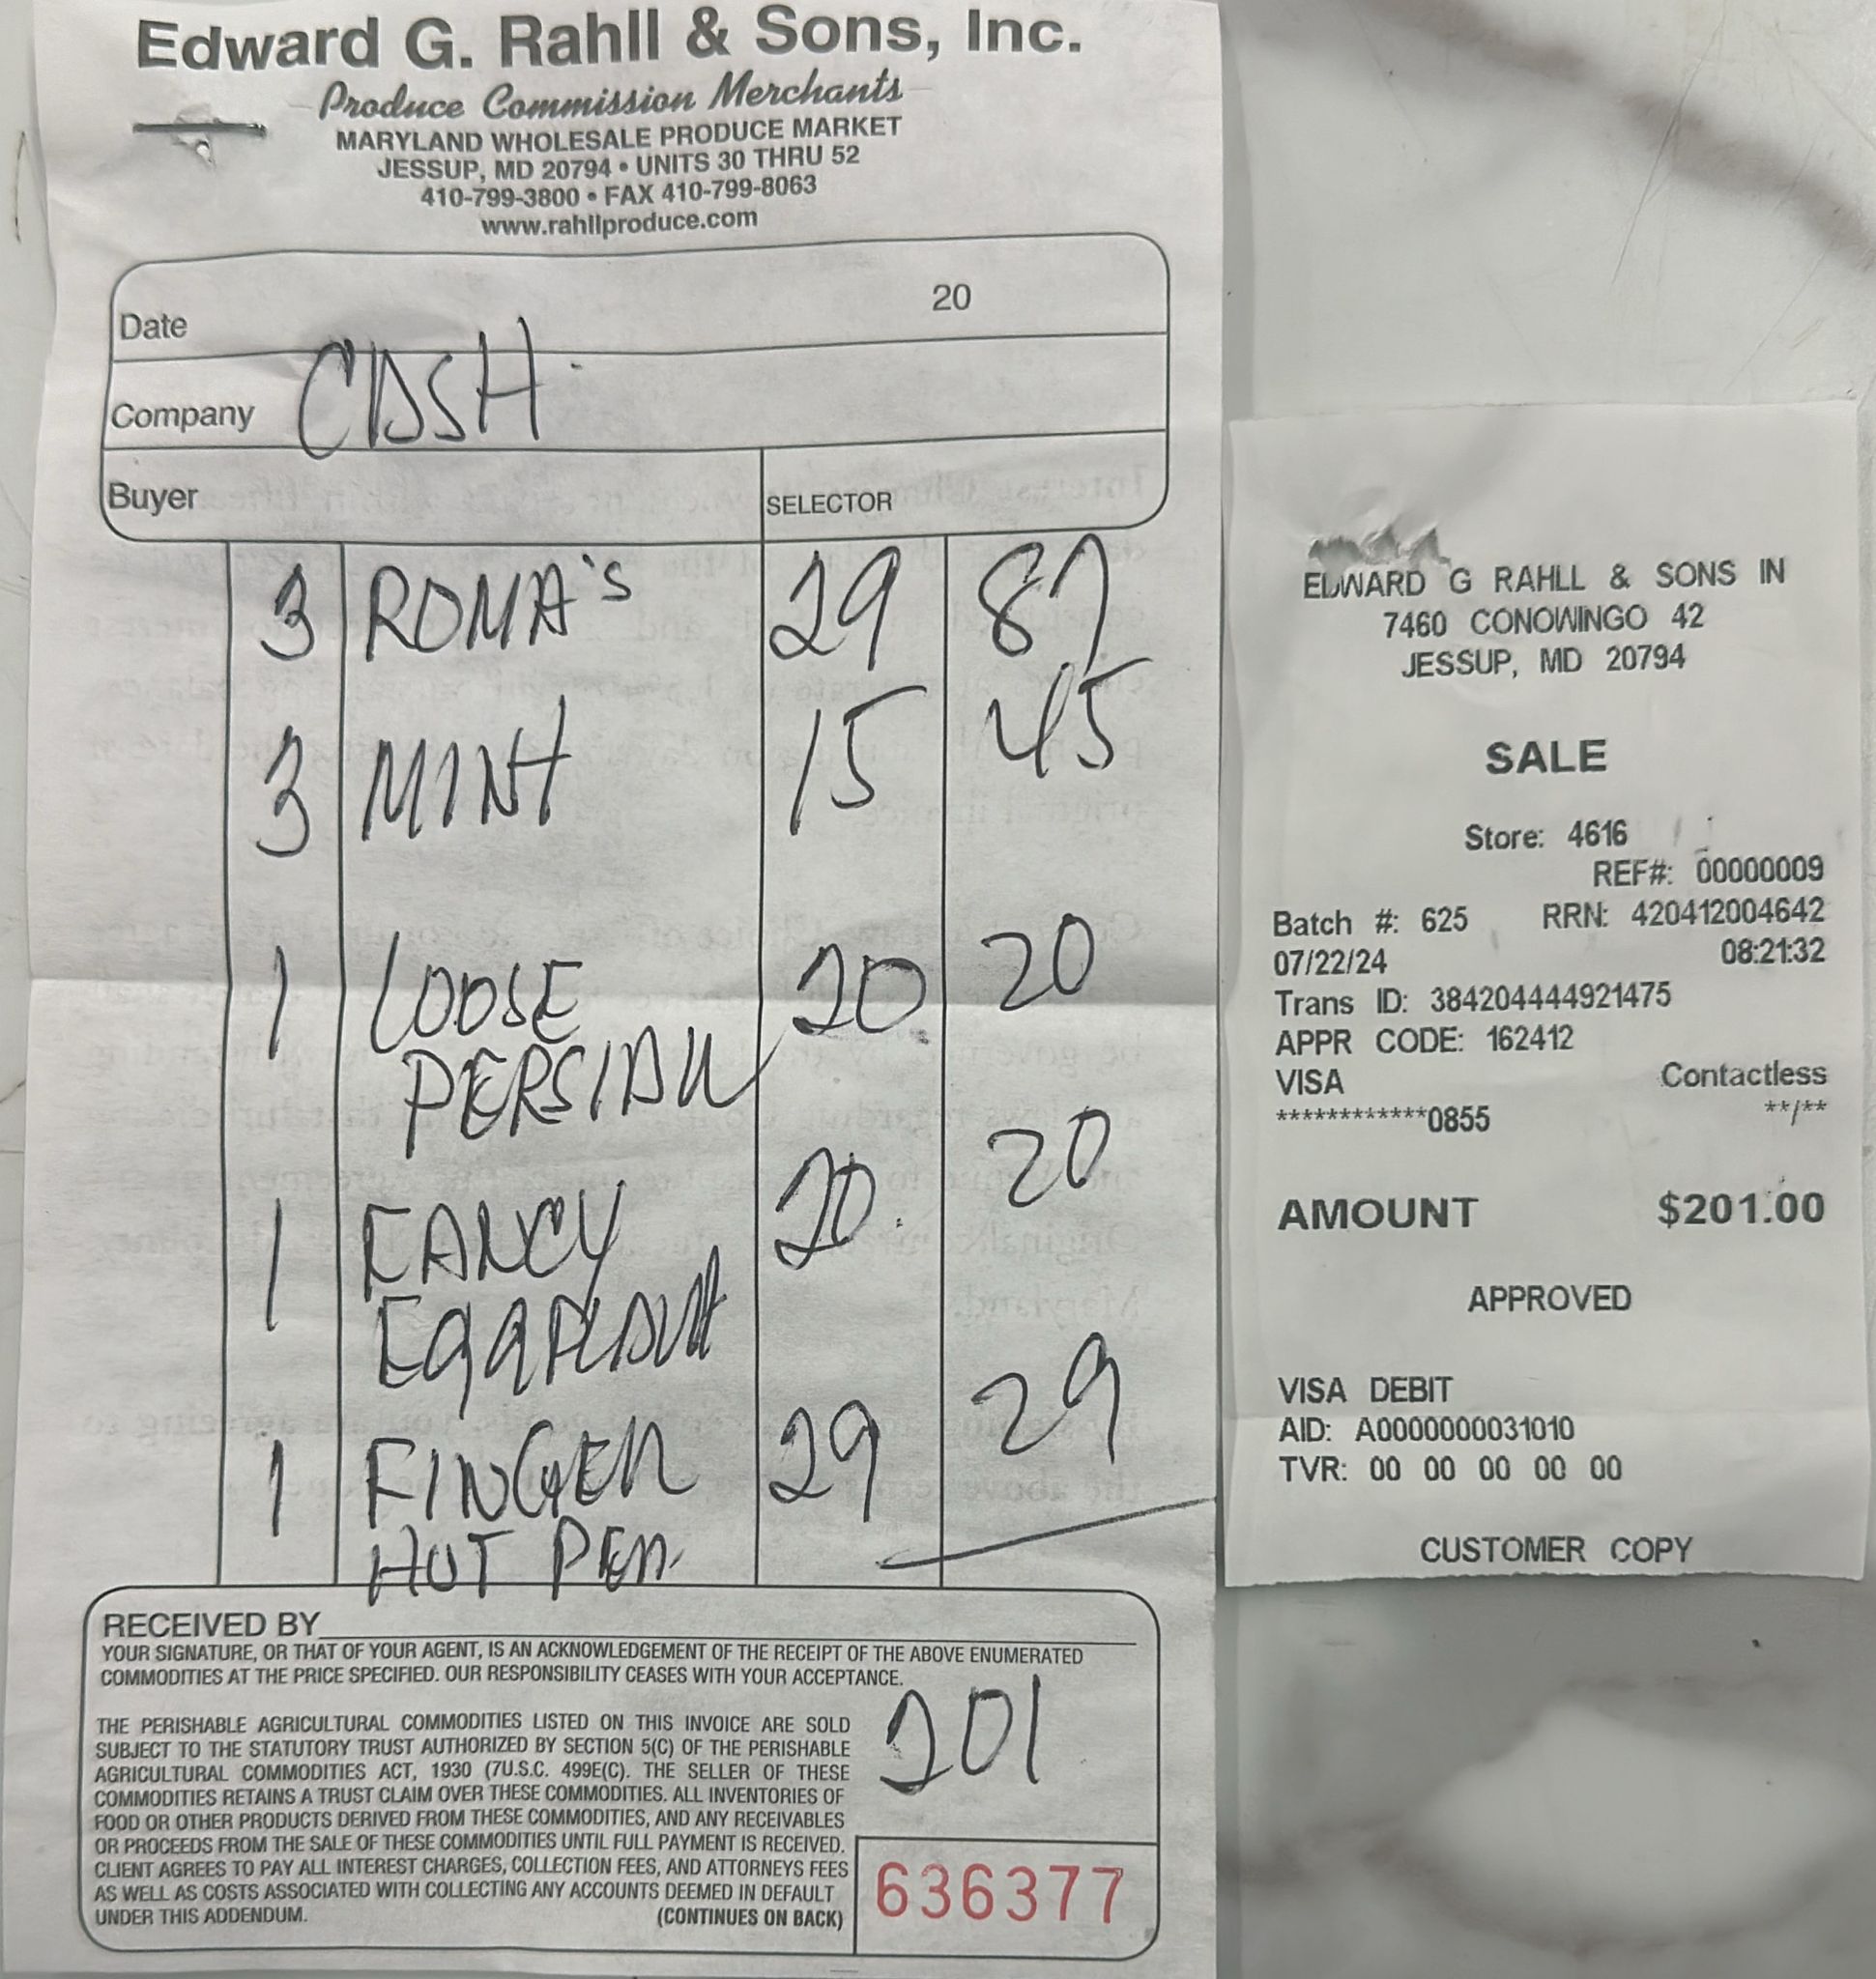 Edward G. Rahll & Sons, Inc.
Produce Commission Merchants
MARYLAND WHOLESALE PRODUCE MARKET
JESSUP, MD 20794 • UNITS 30 THRU 52
410-799-3800 • FAX 410-799-8063
www.rahllproduce.com
Date 20
Company CASH
Buyer SELECTOR
3 ROMA's 29 87
3 MINT 15 45
1 LOOSE 20 20
PERSIAN
1 FANCY 20 20
EGGPLANT
1 FINGER 29 29
HOT PEP.
RECEIVED BY
YOUR SIGNATURE, OR THAT OF YOUR AGENT, IS AN ACKNOWLEDGEMENT OF THE RECEIPT OF THE ABOVE ENUMERATED
COMMODITIES AT THE PRICE SPECIFIED. OUR RESPONSIBILITY CEASES WITH YOUR ACCEPTANCE.
201
THE PERISHABLE AGRICULTURAL COMMODITIES LISTED ON THIS INVOICE ARE SOLD
SUBJECT TO THE STATUTORY TRUST AUTHORIZED BY SECTION 5(C) OF THE PERISHABLE
AGRICULTURAL COMMODITIES ACT, 1930 (7U.S.C. 499E(C). THE SELLER OF THESE
COMMODITIES RETAINS A TRUST CLAIM OVER THESE COMMODITIES. ALL INVENTORIES OF
FOOD OR OTHER PRODUCTS DERIVED FROM THESE COMMODITIES, AND ANY RECEIVABLES
OR PROCEEDS FROM THE SALE OF THESE COMMODITIES UNTIL FULL PAYMENT IS RECEIVED.
CLIENT AGREES TO PAY ALL INTEREST CHARGES, COLLECTION FEES, AND ATTORNEYS FEES
AS WELL AS COSTS ASSOCIATED WITH COLLECTING ANY ACCOUNTS DEEMED IN DEFAULT
UNDER THIS ADDENDUM. (CONTINUES ON BACK)
636377
EDWARD G RAHLL & SONS IN
7460 CONOWINGO 42
JESSUP, MD 20794
SALE
Store: 4616
REF#: 00000009
Batch #: 625 RRN: 420412004642
07/22/24 08:21:32
Trans ID: 384204444921475
APPR CODE: 162412
VISA Contactless
************0855 **/**
AMOUNT $201.00
APPROVED
VISA DEBIT
AID: A0000000031010
TVR: 00 00 00 00 00
CUSTOMER COPY